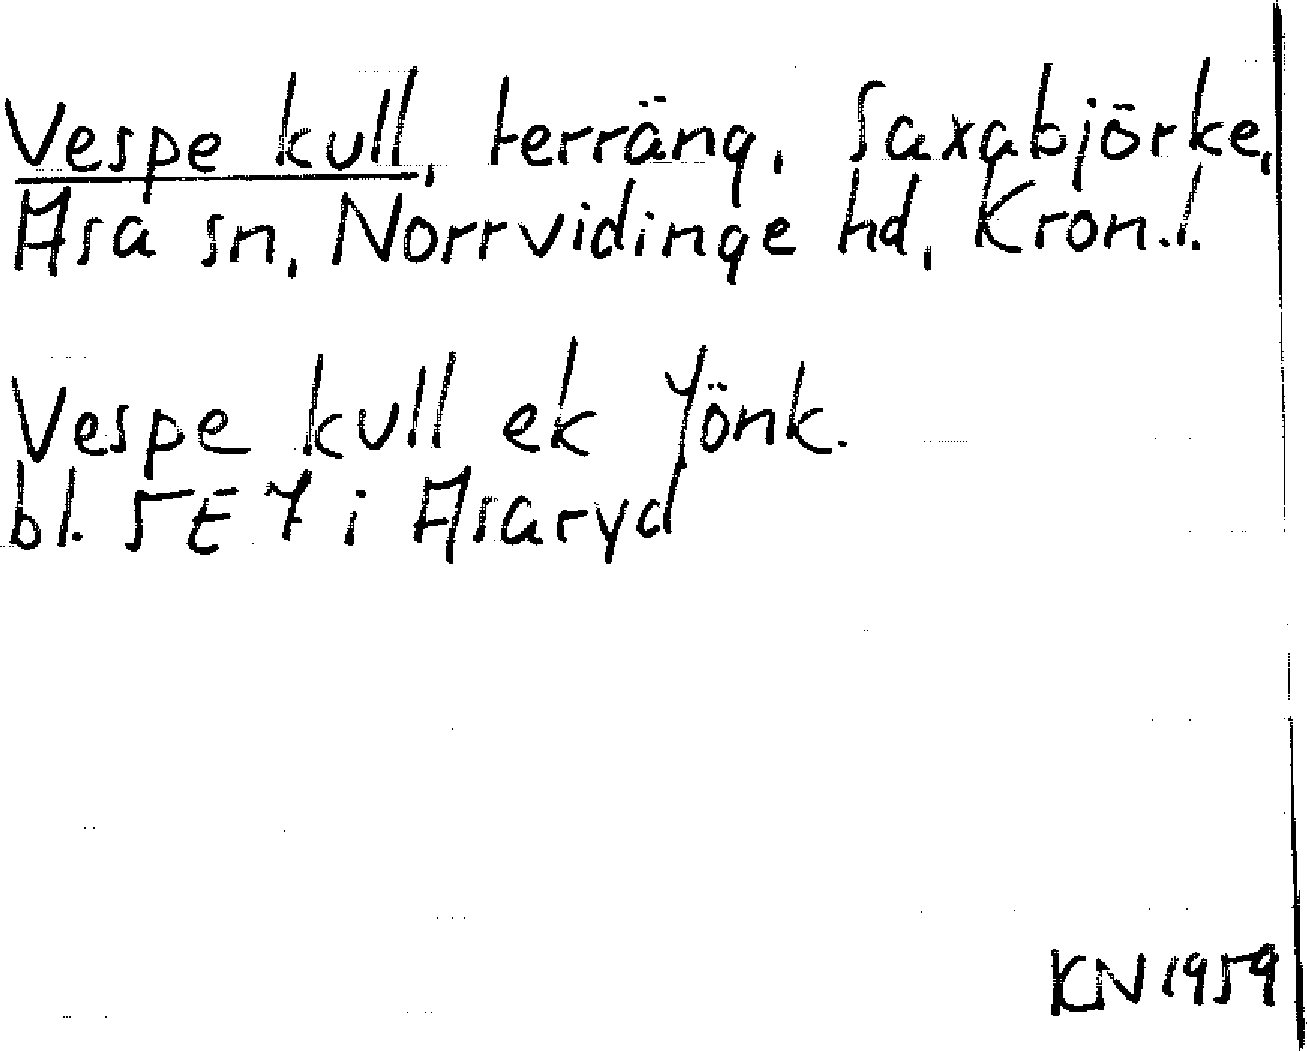 Vespe kull, terräng, Saxabjörke,
Asa sn, Norrvidinge hd, Kron.l.
Vespe kull ek Jönk.
bl. 5E7 i Asaryd
KN 1959